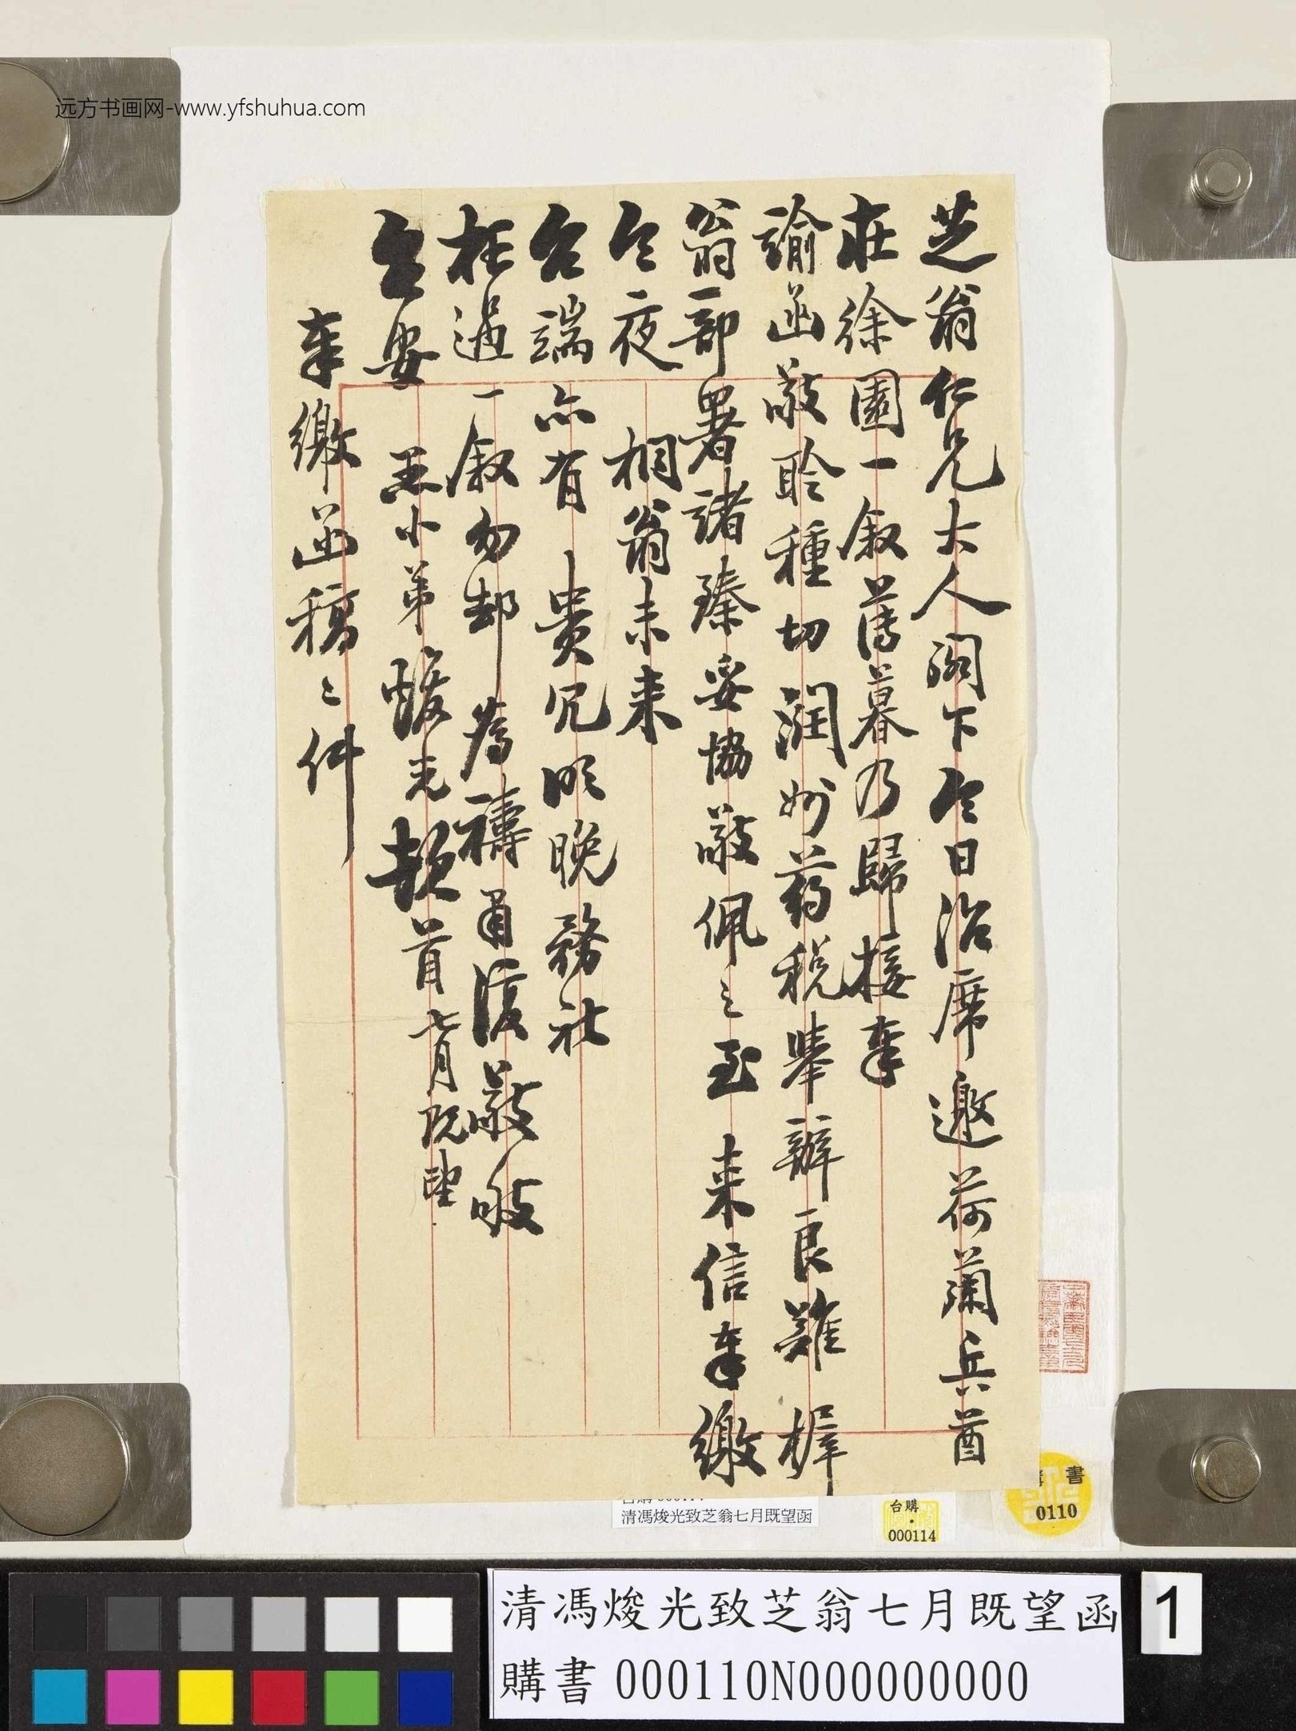 远方书画网-www.yfshuhua.com
芝翁仁兄大人閣下今日治席邀荷蘭兵酋
在徐園一叙薄暮乃歸接奉
諭函敬聆種切潤州药税舉辦良難樨
翁一部署諸臻妥協敬佩之至 来信奉繳
今夜 桐翁未来
台端亦有貴冗明晚務祉
枉過一叙勿却為禱肅復敬頌
台安 愚小弟焌光頓首七月既望
奉繳函稿三件
書
0110
台購
000114
清馮焌光致芝翁七月既望函
清馮焌光致芝翁七月既望函
購書000110N000000000
1